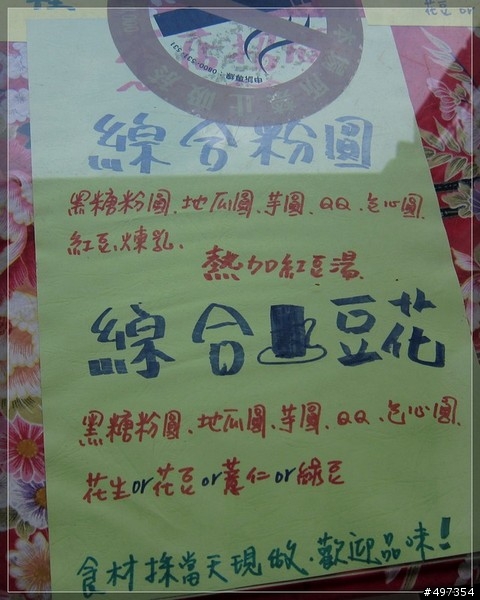 花豆 or
本場所禁止吸菸
綜合粉圓
黑糖粉圓、地瓜圓、芋圓、QQ、包心圓
紅豆、煉乳、
熱加紅豆湯
綜合豆花
黑糖粉圓、地瓜圓、芋圓、QQ、包心圓
花生or花豆or薏仁or綠豆
食材採當天現做、歡迎品味!
#497354